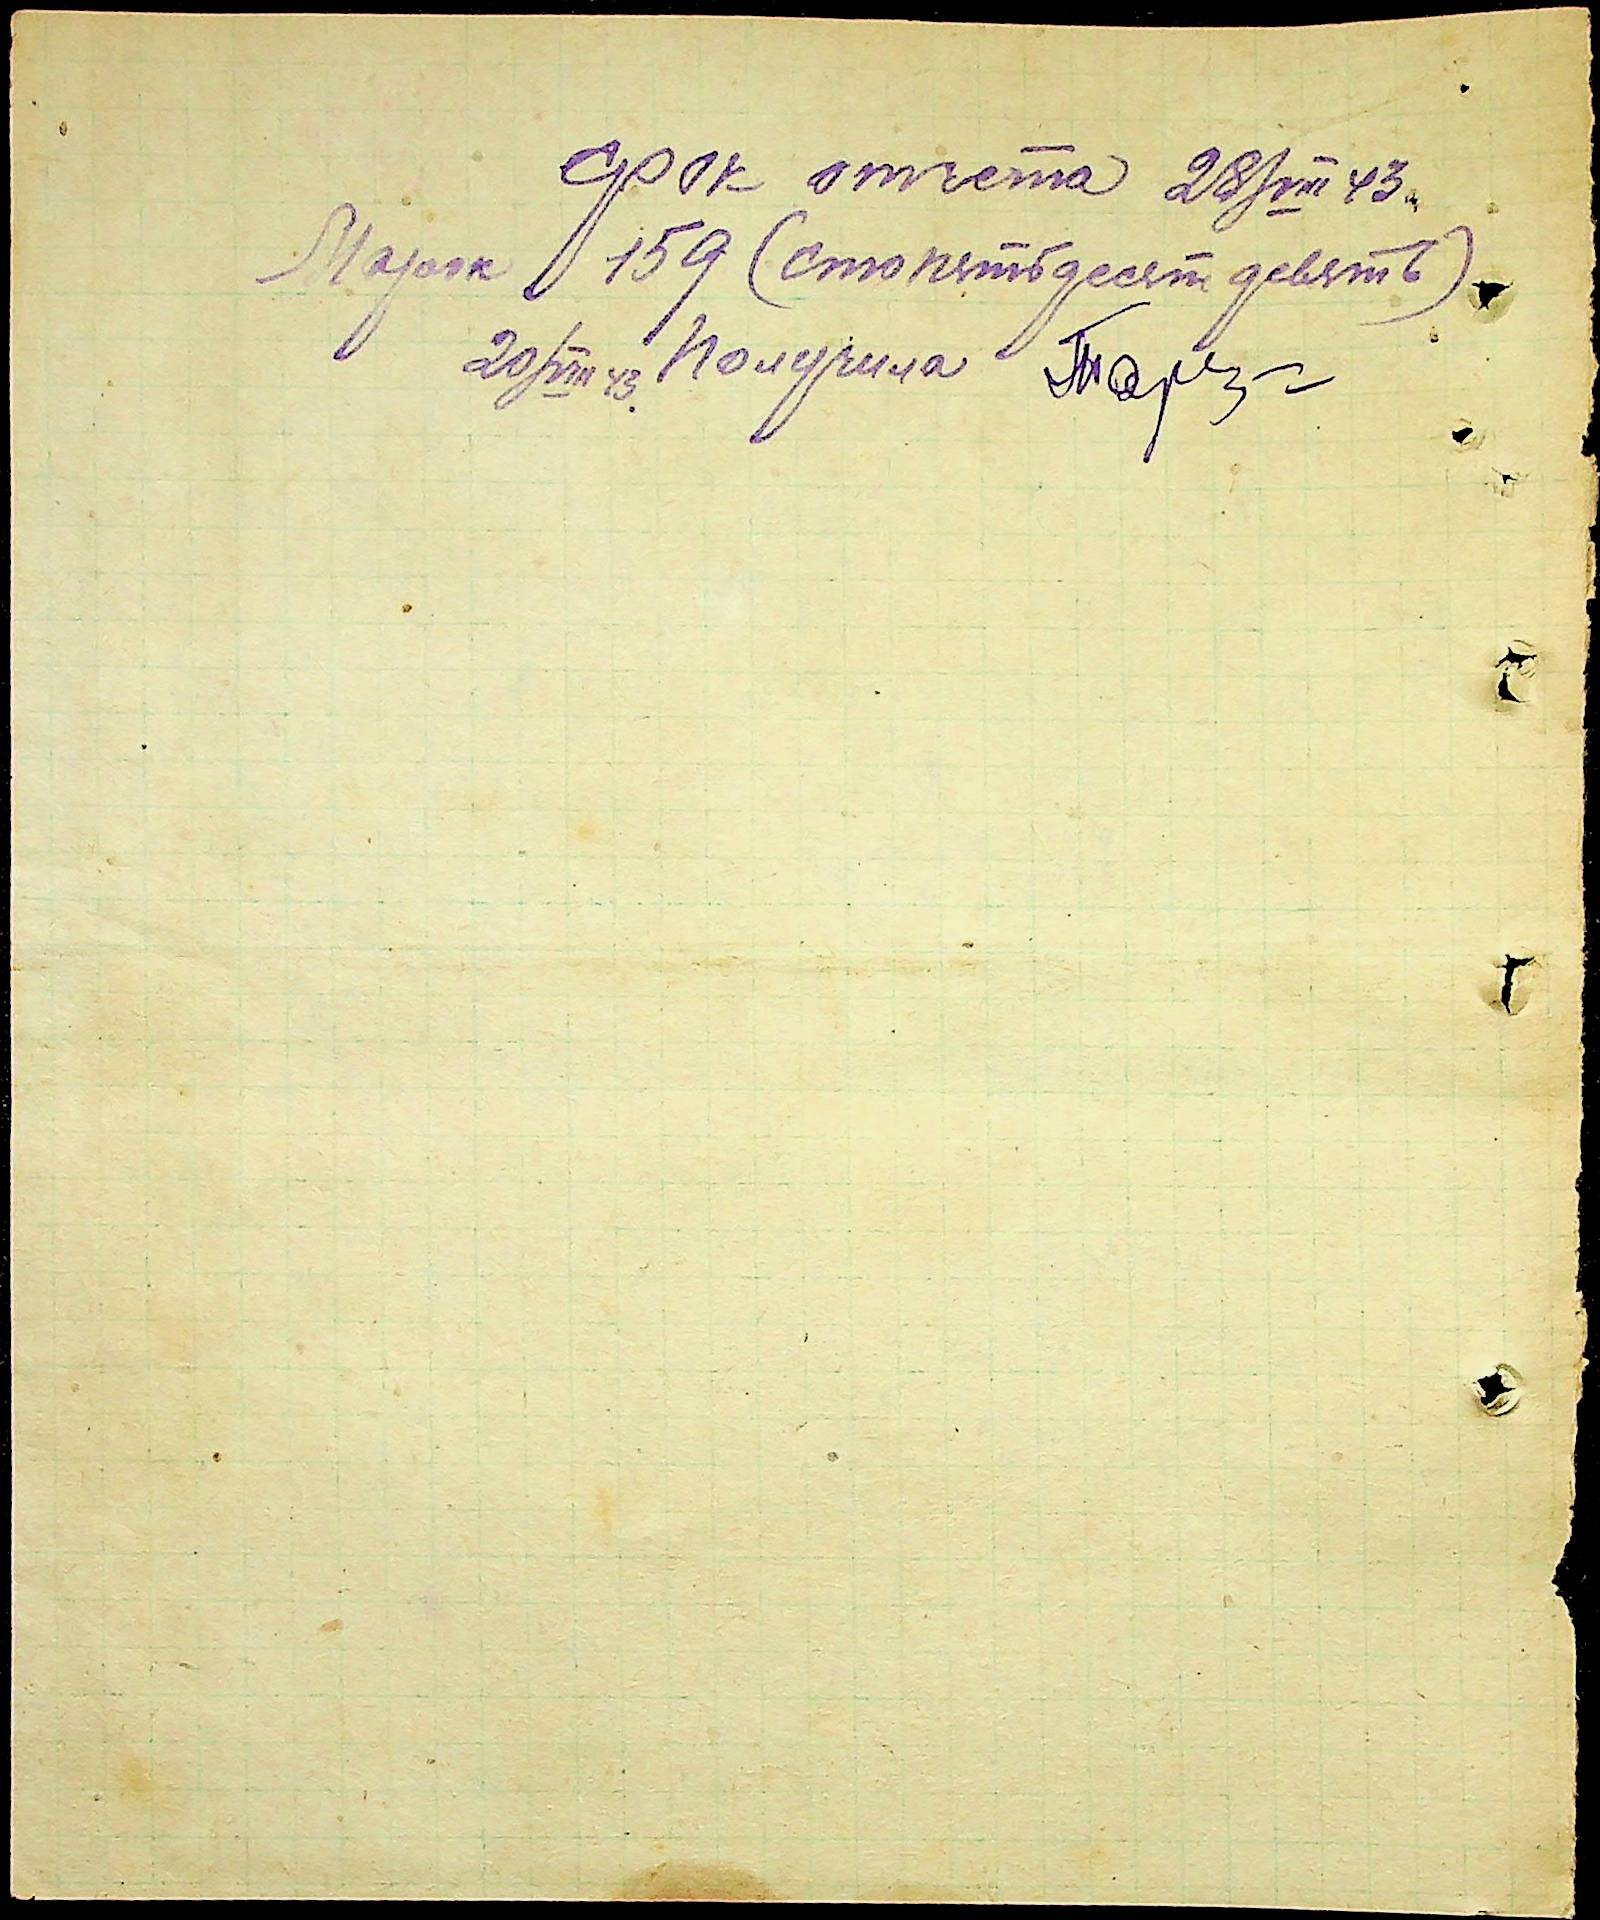 Срок отчета 28/VIII 43.
Марок 159 (сто пятьдесят девять)
20/VIII 43. Получила